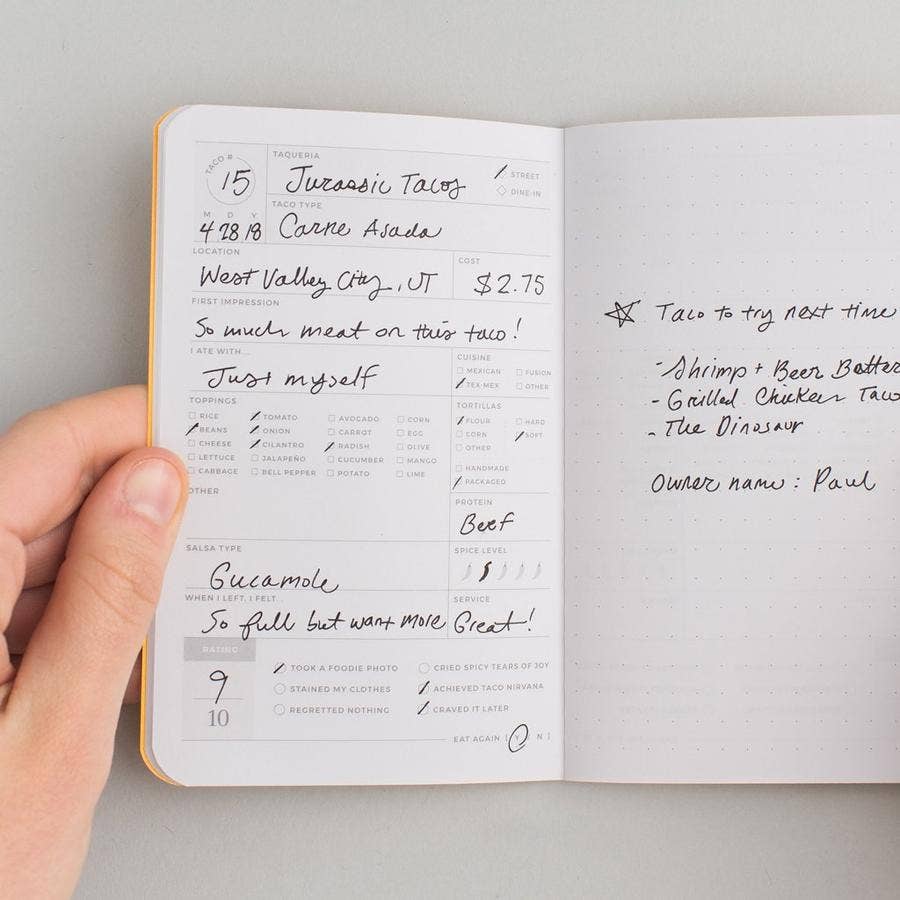 TACO #
15
TAQUERIA
Jurassic Tacos
STREET
DINE-IN
M D Y
4 28 18
TACO TYPE
Carne Asada
LOCATION
West Valley City, UT
COST
$2.75
FIRST IMPRESSION
So much meat on this taco!
I ATE WITH...
Just myself
CUISINE
MEXICAN FUSION
TEX-MEX OTHER
TOPPINGS
RICE TOMATO AVOCADO CORN
BEANS ONION CARROT EGG
CHEESE CILANTRO RADISH OLIVE
LETTUCE JALAPEÑO CUCUMBER MANGO
CABBAGE BELL PEPPER POTATO LIME
TORTILLAS
FLOUR HARD
CORN SOFT
OTHER
HANDMADE
PACKAGED
OTHER
PROTEIN
Beef
SALSA TYPE
Gucamole
SPICE LEVEL
WHEN I LEFT, I FELT...
So full but want more
SERVICE
Great!
RATING
9
10
TOOK A FOODIE PHOTO CRIED SPICY TEARS OF JOY
STAINED MY CLOTHES ACHIEVED TACO NIRVANA
REGRETTED NOTHING CRAVED IT LATER
EAT AGAIN [ Y / N ]
Taco to try next time
- Shrimp + Beer Batter
- Grilled Chicken Taco
- The Dinosaur
Owner name: Paul